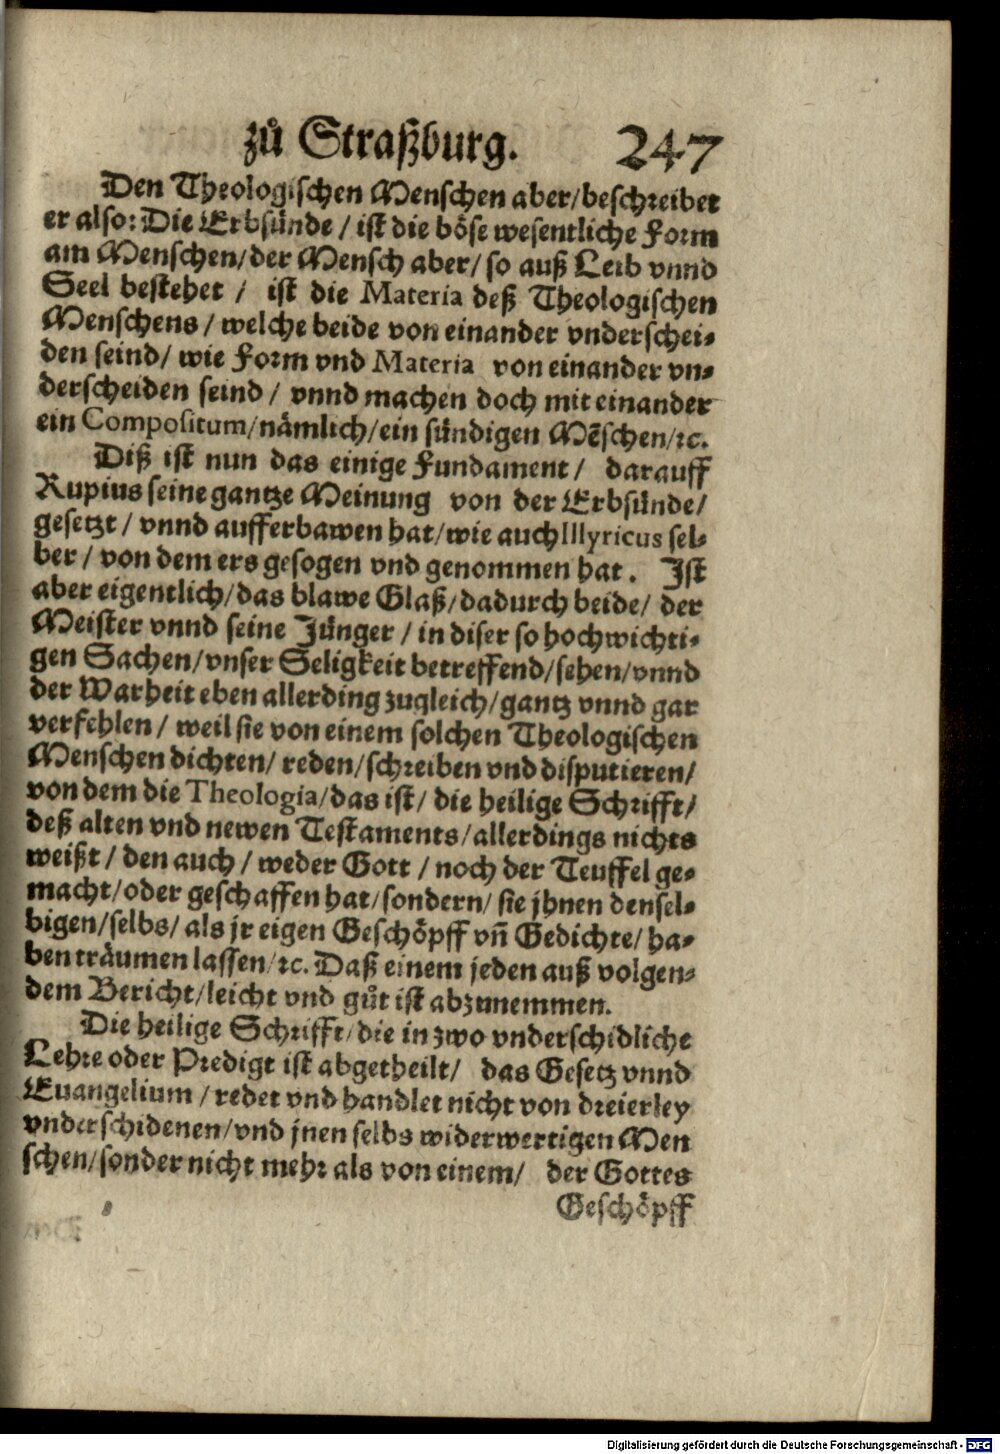 zů Straßburg. 247
Den Theologischen Menschen aber/beschreibet
er also: Die Erbsünde / ist die böse wesentliche Form
am Menschen/der Mensch aber/ so auß Leib vnnd
Seel bestehet / ist die Materia deß Theologischen
Menschens / welche beide von einander vnderschei⸗
den seind/ wie Form vnd Materia von einander vn⸗
derscheiden seind / vnnd machen doch mit einander
ein Compositum/nämlich/ein sündigen Mẽschen/ꝛc.
Diß ist nun das einige Fundament/ darauff
Rupius seine gantze Meinung von der Erbsünde/
gesetzt / vnnd aufferbawen hat/wie auch Illyricus sel⸗
ber / von dem ers gesogen vnd genommen hat. Ist
aber eigentlich/das blawe Glaß/dadurch beide/ der
Meister vnnd seine Jünger / in diser so hochwichti⸗
gen Sachen/vnser Seligkeit betreffend/sehen/vnnd
der Warheit eben allerding zugleich/gantz vnnd gar
verfehlen / weil sie von einem solchen Theologischen
Menschen dichten/ reden/schreiben vnd disputieren/
von dem die Theologia/das ist/ die heilige Schrifft/
deß alten vnd newen Testaments/allerdings nichts
weißt / den auch / weder Gott / noch der Teuffel ge⸗
macht/oder geschaffen hat/sondern/ sie jhnen densel⸗
bigen/selbs/ als jr eigen Geschöpff vñ Gedichte/ ha⸗
ben träumen lassen/ꝛc. Daß einem jeden auß volgen⸗
dem Bericht/leicht vnd gůt ist abzunemmen.
Die heilige Schrifft/die in zwo vnderschidliche
Lehre oder Predigt ist abgetheilt/ das Gesetz vnnd
Euangelium / redet vnd handlet nicht von dreierley
vnderschidenen/vnd jnen selbs widerwertigen Men
schen/sonder nicht mehr als von einem/ der Gottes
Geschöpff
Digitalisierung gefördert durch die Deutsche Forschungsgemeinschaft - DFG